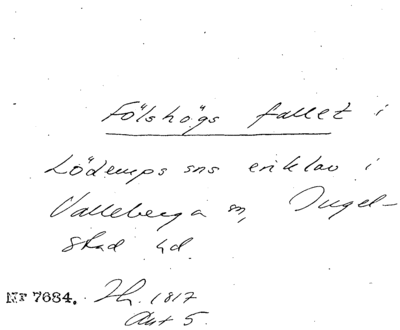 Fölshögs fallet i
Löderups sns enklav i
Valleberga sn, Ingel-
stad hd.
NF 7684. Jh. 1817
Akt 5.